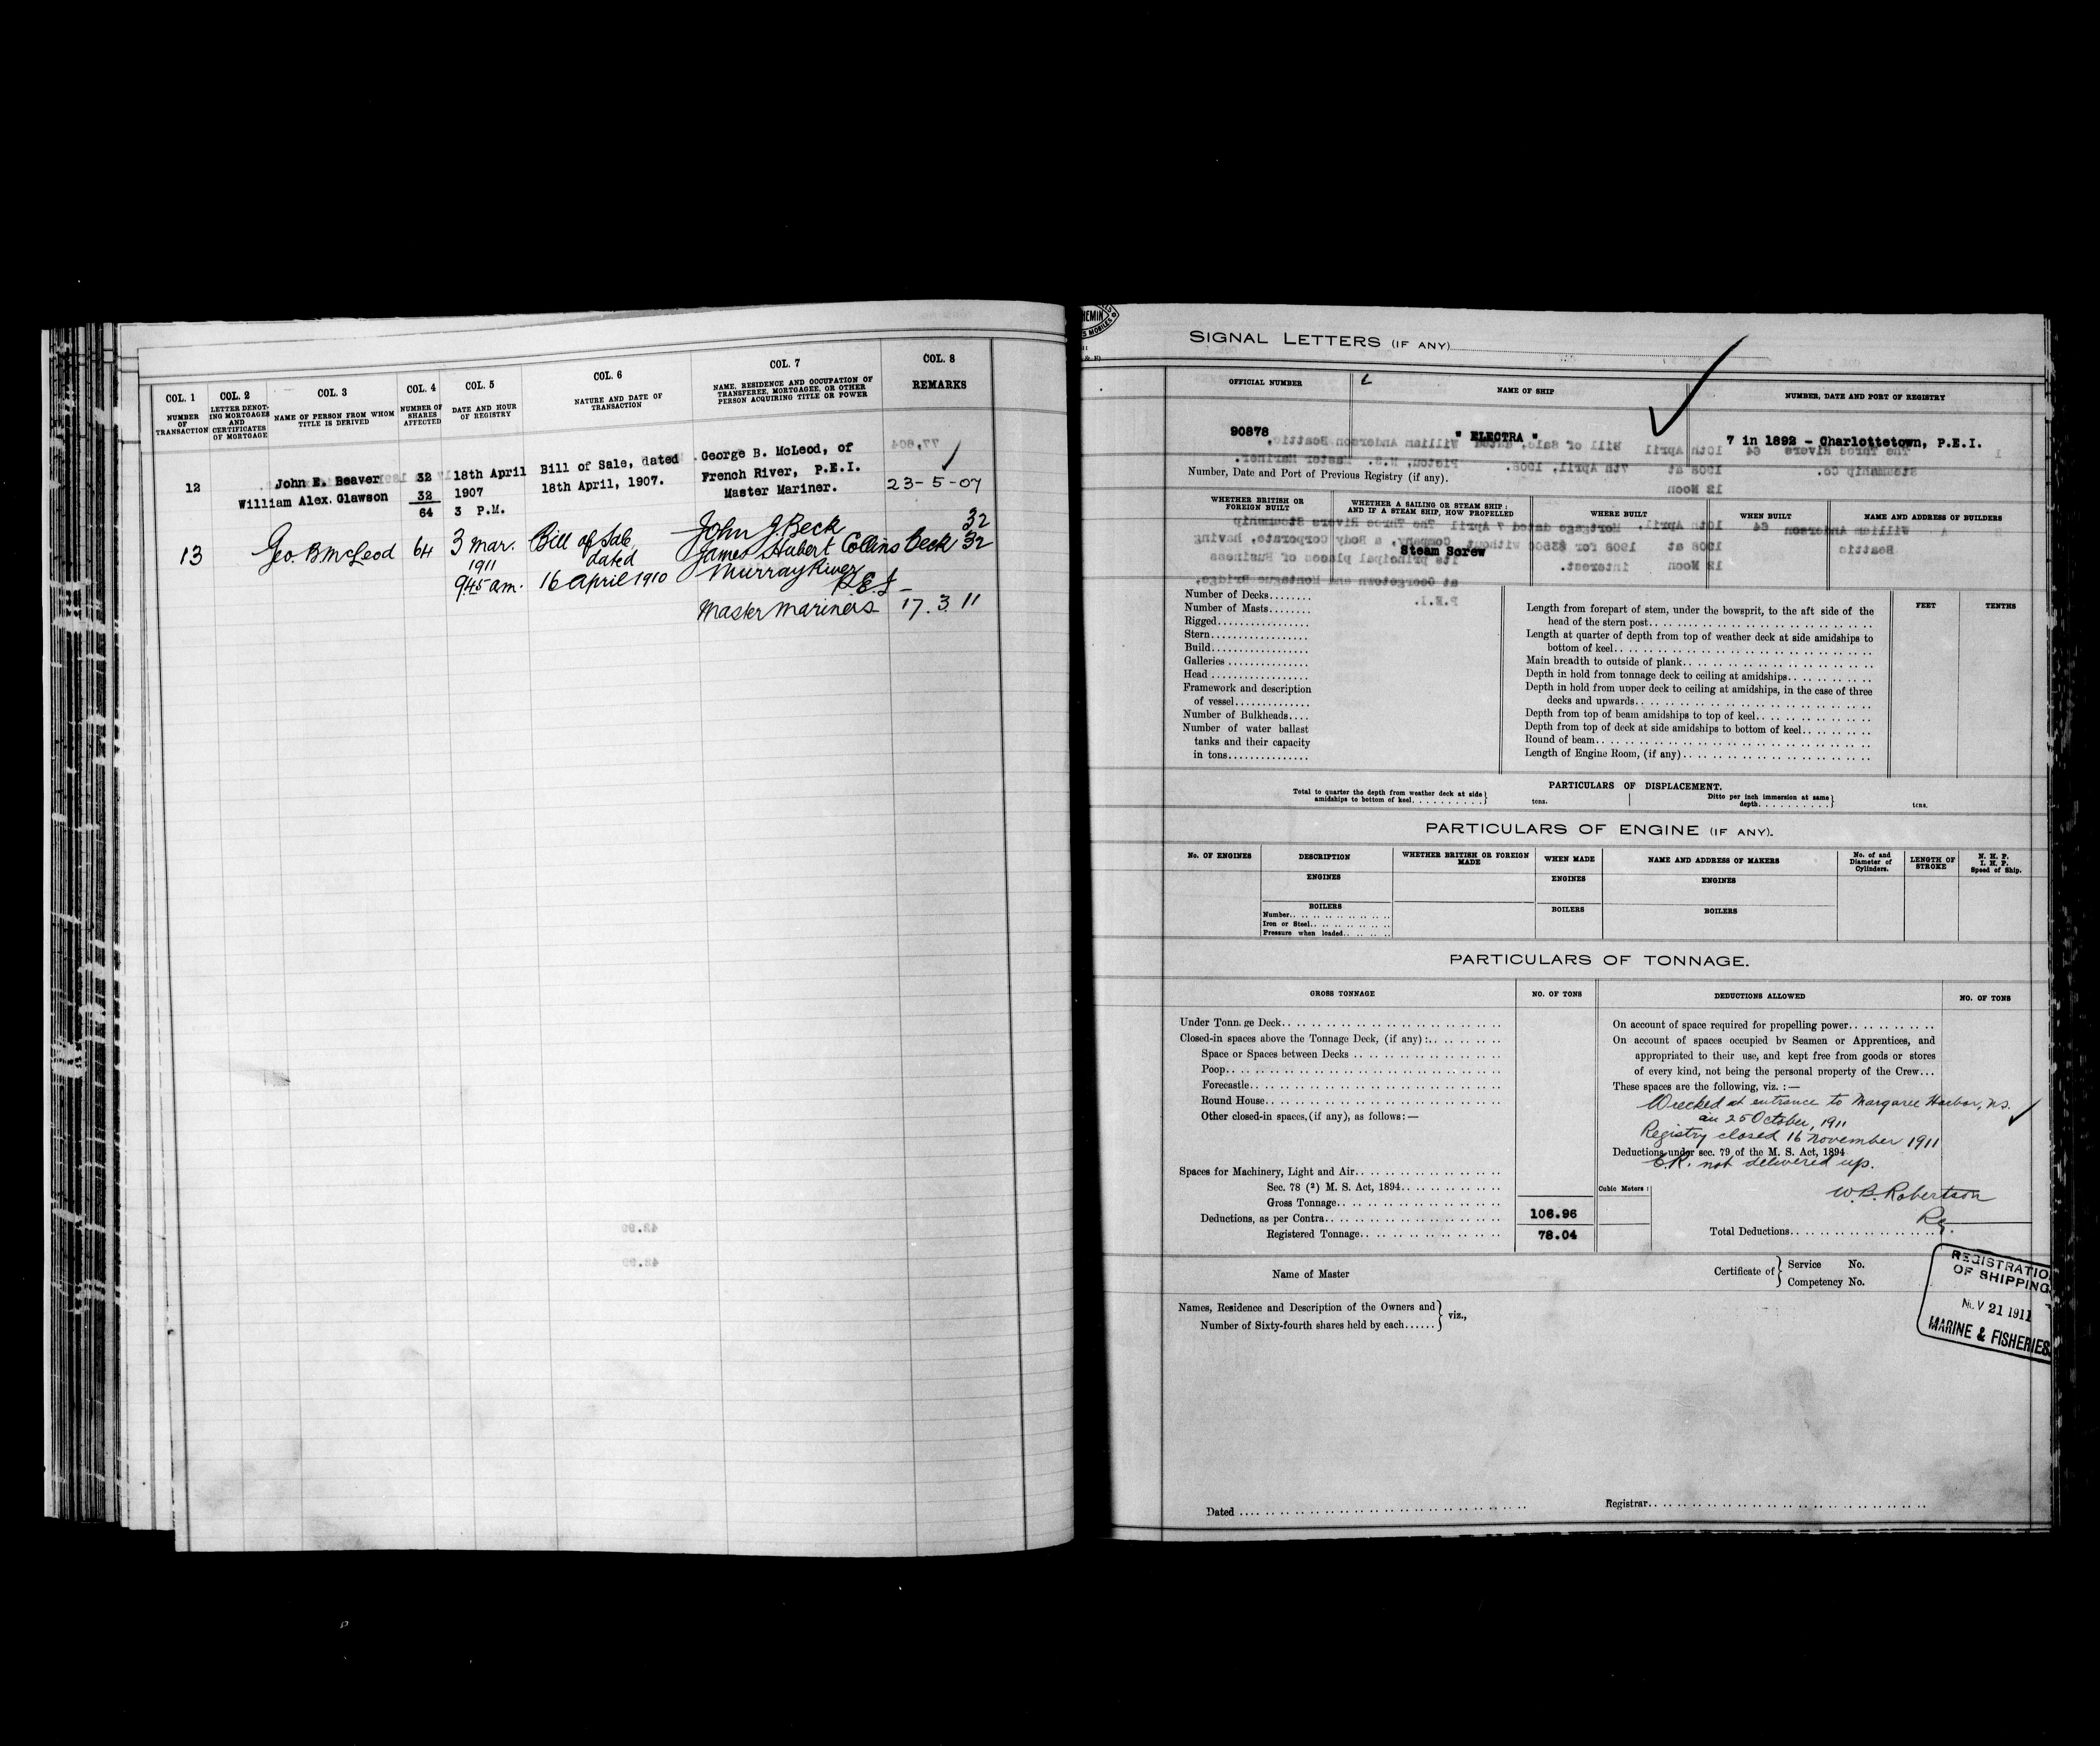 COL. 1
NUMBER OF TRANSACTION
COL. 2
LETTER DENOTING MORTGAGES AND CERTIFICATES OF MORTGAGE
COL. 3
NAME OF PERSON FROM WHOM TITLE IS DERIVED
COL. 4
NUMBER OF SHARES AFFECTED
COL. 5
DATE AND HOUR OF REGISTRY
COL. 6
NATURE AND DATE OF TRANSACTION
COL. 7
NAME, RESIDENCE AND OCCUPATION OF TRANSFEREE, MORTGAGEE, OR OTHER PERSON ACQUIRING TITLE OR POWER
COL. 8
REMARKS
12
John E. Beaver 32
William Alex. Glawson 32
64
18th April
1907
3 P.M.
Bill of Sale, dated
18th April, 1907.
George B. McLeod, of
French River, P.E.I.
Master Mariner.
23-5-07
13
Geo. B. McLeod
64
3 Mar.
1911
9.45 am.
Bill of Sale
dated
16 April 1910
John J. Beck 32
James Hubert Collins Beck 32
Murray River
P.E.I
Master Mariners
17.3.11
SIGNAL LETTERS (IF ANY)
OFFICIAL NUMBER
NAME OF SHIP
NUMBER, DATE AND PORT OF REGISTRY
90878
" ELECTRA "
7 in 1892 - Charlottetown, P.E.I.
Number, Date and Port of Previous Registry (if any).
WHETHER BRITISH OR FOREIGN BUILT
WHETHER A SAILING OR STEAM SHIP: AND IF A STEAM SHIP, HOW PROPELLED
WHERE BUILT
WHEN BUILT
NAME AND ADDRESS OF BUILDERS
Steam Screw
Number of Decks........
Number of Masts........
Rigged.................
Stern..................
Build..................
Galleries...............
Head..................
Framework and description
of vessel..............
Number of Bulkheads....
Number of water ballast
tanks and their capacity
in tons...............
FEET
TENTHS
Length from forepart of stem, under the bowsprit, to the aft side of the
head of the stern post..........
Length at quarter of depth from top of weather deck at side amidships to
bottom of keel..........
Main breadth to outside of plank..........
Depth in hold from tonnage deck to ceiling at amidships..........
Depth in hold from upper deck to ceiling at amidships, in the case of three
decks and upwards..........
Depth from top of beam amidships to top of keel..........
Depth from top of deck at side amidships to bottom of keel..........
Round of beam..........
Length of Engine Room, (if any)..........
PARTICULARS OF DISPLACEMENT.
Total to quarter the depth from weather deck at side
amidships to bottom of keel.......... tons.
Ditto per inch immersion at same
depth.......... tons.
PARTICULARS OF ENGINE (IF ANY).
No. OF ENGINES
DESCRIPTION
WHETHER BRITISH OR FOREIGN MADE
WHEN MADE
NAME AND ADDRESS OF MAKERS
No. of and Diameter of Cylinders.
LENGTH OF STROKE
N. H. P.
I. H. P.
Speed of Ship.
ENGINES
ENGINES
ENGINES
BOILERS
Number..........
Iron or Steel..........
Pressure when loaded..........
BOILERS
BOILERS
PARTICULARS OF TONNAGE.
GROSS TONNAGE
NO. OF TONS
DEDUCTIONS ALLOWED
NO. OF TONS
Under Tonnage Deck..........
Closed-in spaces above the Tonnage Deck, (if any):..........
Space or Spaces between Decks..........
Poop..........
Forecastle..........
Round House..........
Other closed-in spaces, (if any), as follows:—
Spaces for Machinery, Light and Air..........
Sec. 78 (2) M. S. Act, 1894..........
Gross Tonnage.......... 106.96
Deductions, as per Contra..........
Registered Tonnage.......... 78.04
On account of space required for propelling power..........
On account of spaces occupied by Seamen or Apprentices, and
appropriated to their use, and kept free from goods or stores
of every kind, not being the personal property of the Crew...
These spaces are the following, viz. :—
Wrecked at entrance to Margaree Harbor, N.S.
on 25 October, 1911
Registry closed 16 November 1911
Deductions under sec. 79 of the M. S. Act, 1894
C.R. not delivered up.
Cubic Meters:
W.B. Robertson
Rg.
Total Deductions..........
Name of Master
Certificate of
Service No.
Competency No.
REGISTRATIO
OF SHIPPING
NOV 21 1911
MARINE & FISHERIES
Names, Residence and Description of the Owners and
Number of Sixty-fourth shares held by each......
viz.,
Dated ..........
Registrar..........